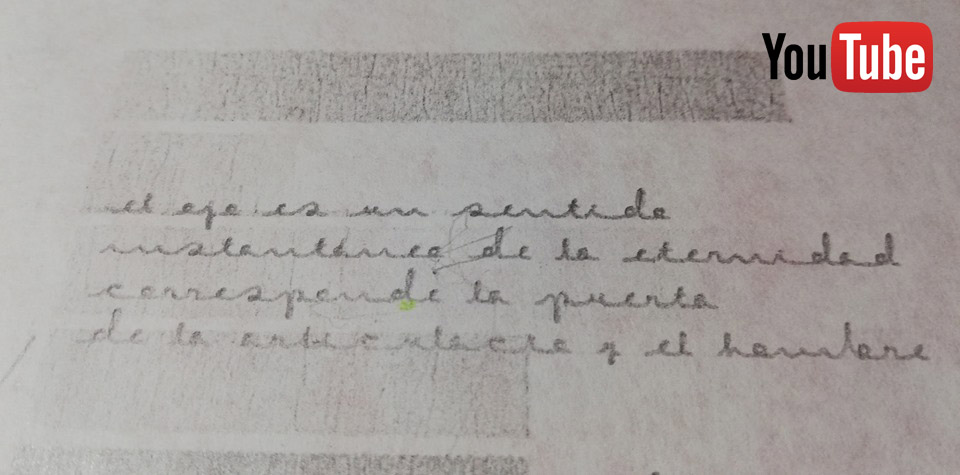 YouTube
el eje es un sentido
instantáneo de la eternidad
corresponde la puerta
de la y el hombre